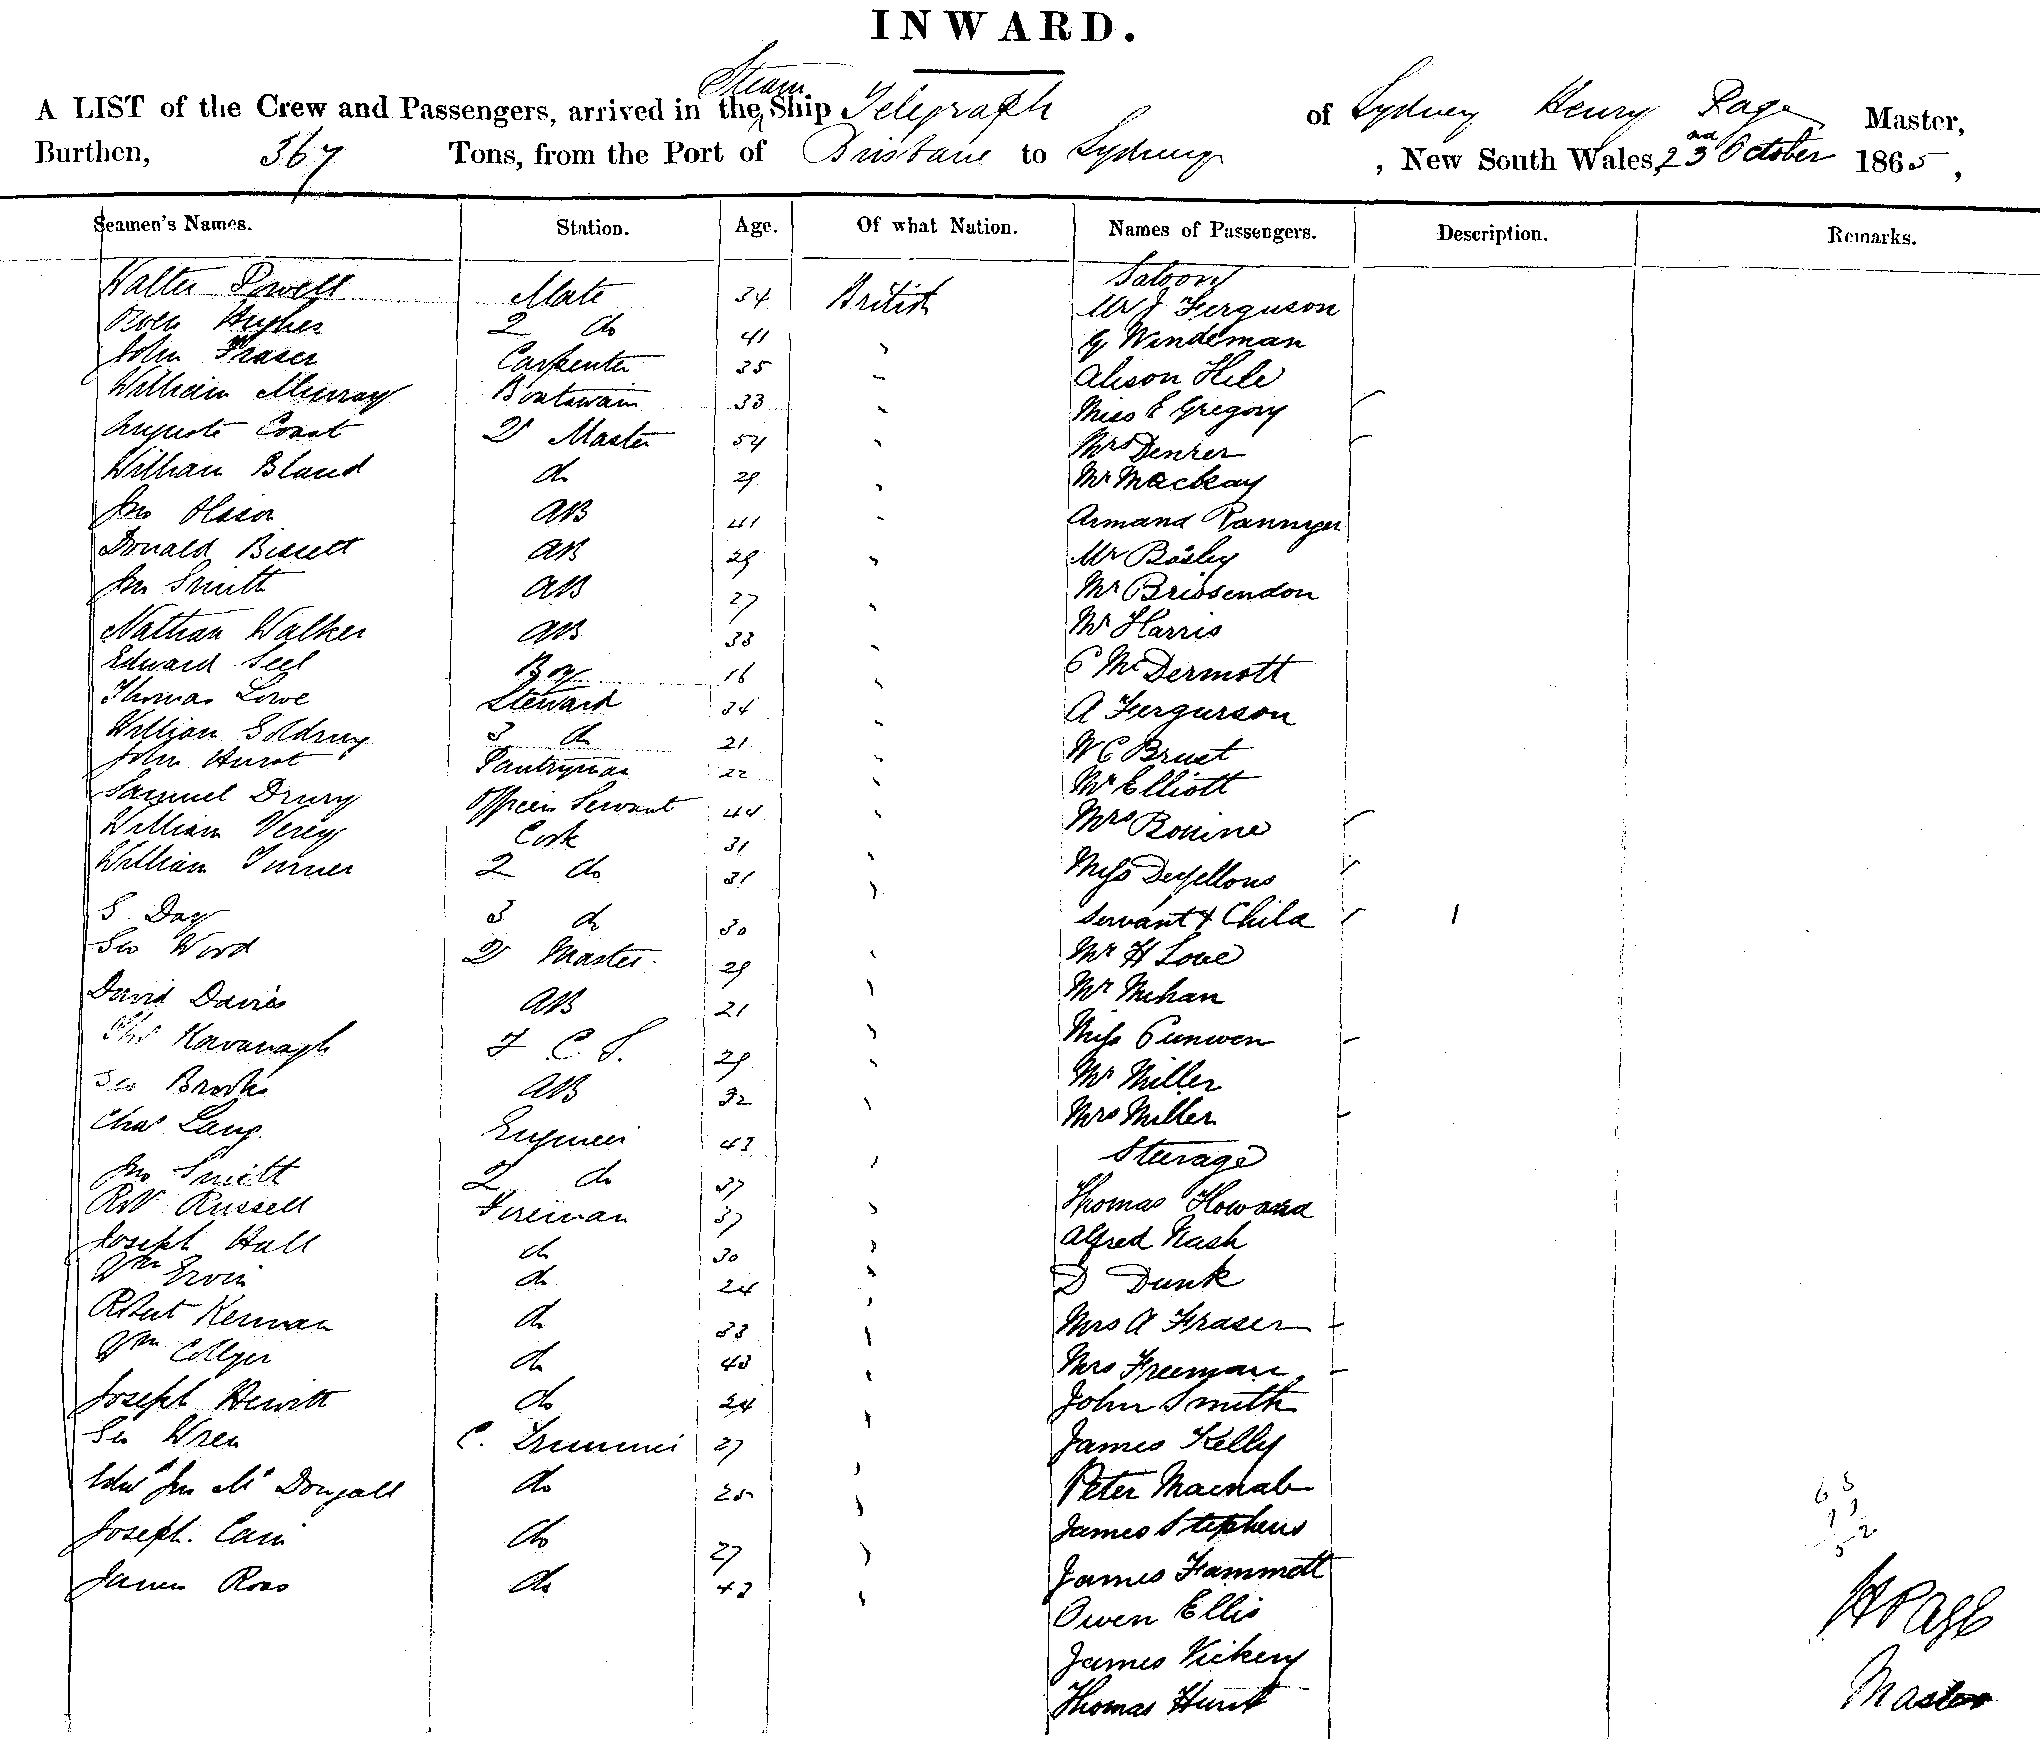 INWARD.
Steam
A LIST of the Crew and Passengers, arrived in the Ship Telegraph of Sydney Henry Page Master,
Burthen, 367 Tons, from the Port of Brisbane to Sydney, New South Wales, 23rd October 1865,
Seamen's Names. Station. Age. Of what Nation. Names of Passengers. Description. Remarks.
Saloon
Walter Powell Mate 34 British Mr J Ferguson
Owen Hughes 2 do 41 G Windeman
John Fraser Carpenter 35 Alison Hile
William Murray Boatswain 33 Miss E Gregory
Auguste Coast Qr Master 54 Mrs Denzer
William Bland do 29 Mr Mackay
Jno Olsson AB 41 Armand
Donald Bissett AB 29 Mr Bosley
Jno Smith AB 27 Mr Brissendon
Nathan Walker AB 33 Mr Harris
Edward Seel Boy 16 C McDermott
Thomas Lowe Steward 34 A Fergurson
William 3 do 21 W C Brust
John Hurst Pantryman 22 Mr Elliott
Samuel Drury Officers Servant 44 Mrs Bonine
William Verey Cook 31
William Turner 2 do 31 Miss
S. Day 3 do 30 Servant & Child 1
Geo Word Qr Master 29 Mr H Love
David Davies AB 21 Mr Mehan
Thos Kavanagh F C S. 29 Miss Cunwen
Geo Brooks AB 32 Mr Miller
Chas Lang. Engineer 43 Mrs Miller
Steerage
Jno Smith 2 do 37 Thomas Howard
Robt Russell Fireman 37 Alfred Nash
Joseph Hall do 30
Wm Ervin do 24 D Dunk
Robert Kernan do 33 Mrs A Fraser
Wm Collyer do 43 Mrs Freeman
Joseph Hewitt do 24 John Smith
Geo Wren C. Trimmer 27 James Kelly
Edwd Jno Mc Dougall do 25 Peter Macnab
Joseph. Cain do 27 James Stephens
James Ross do 43 James Hammett
Owen Ellis
James Vickery
Thomas Hunt
H Page
Master